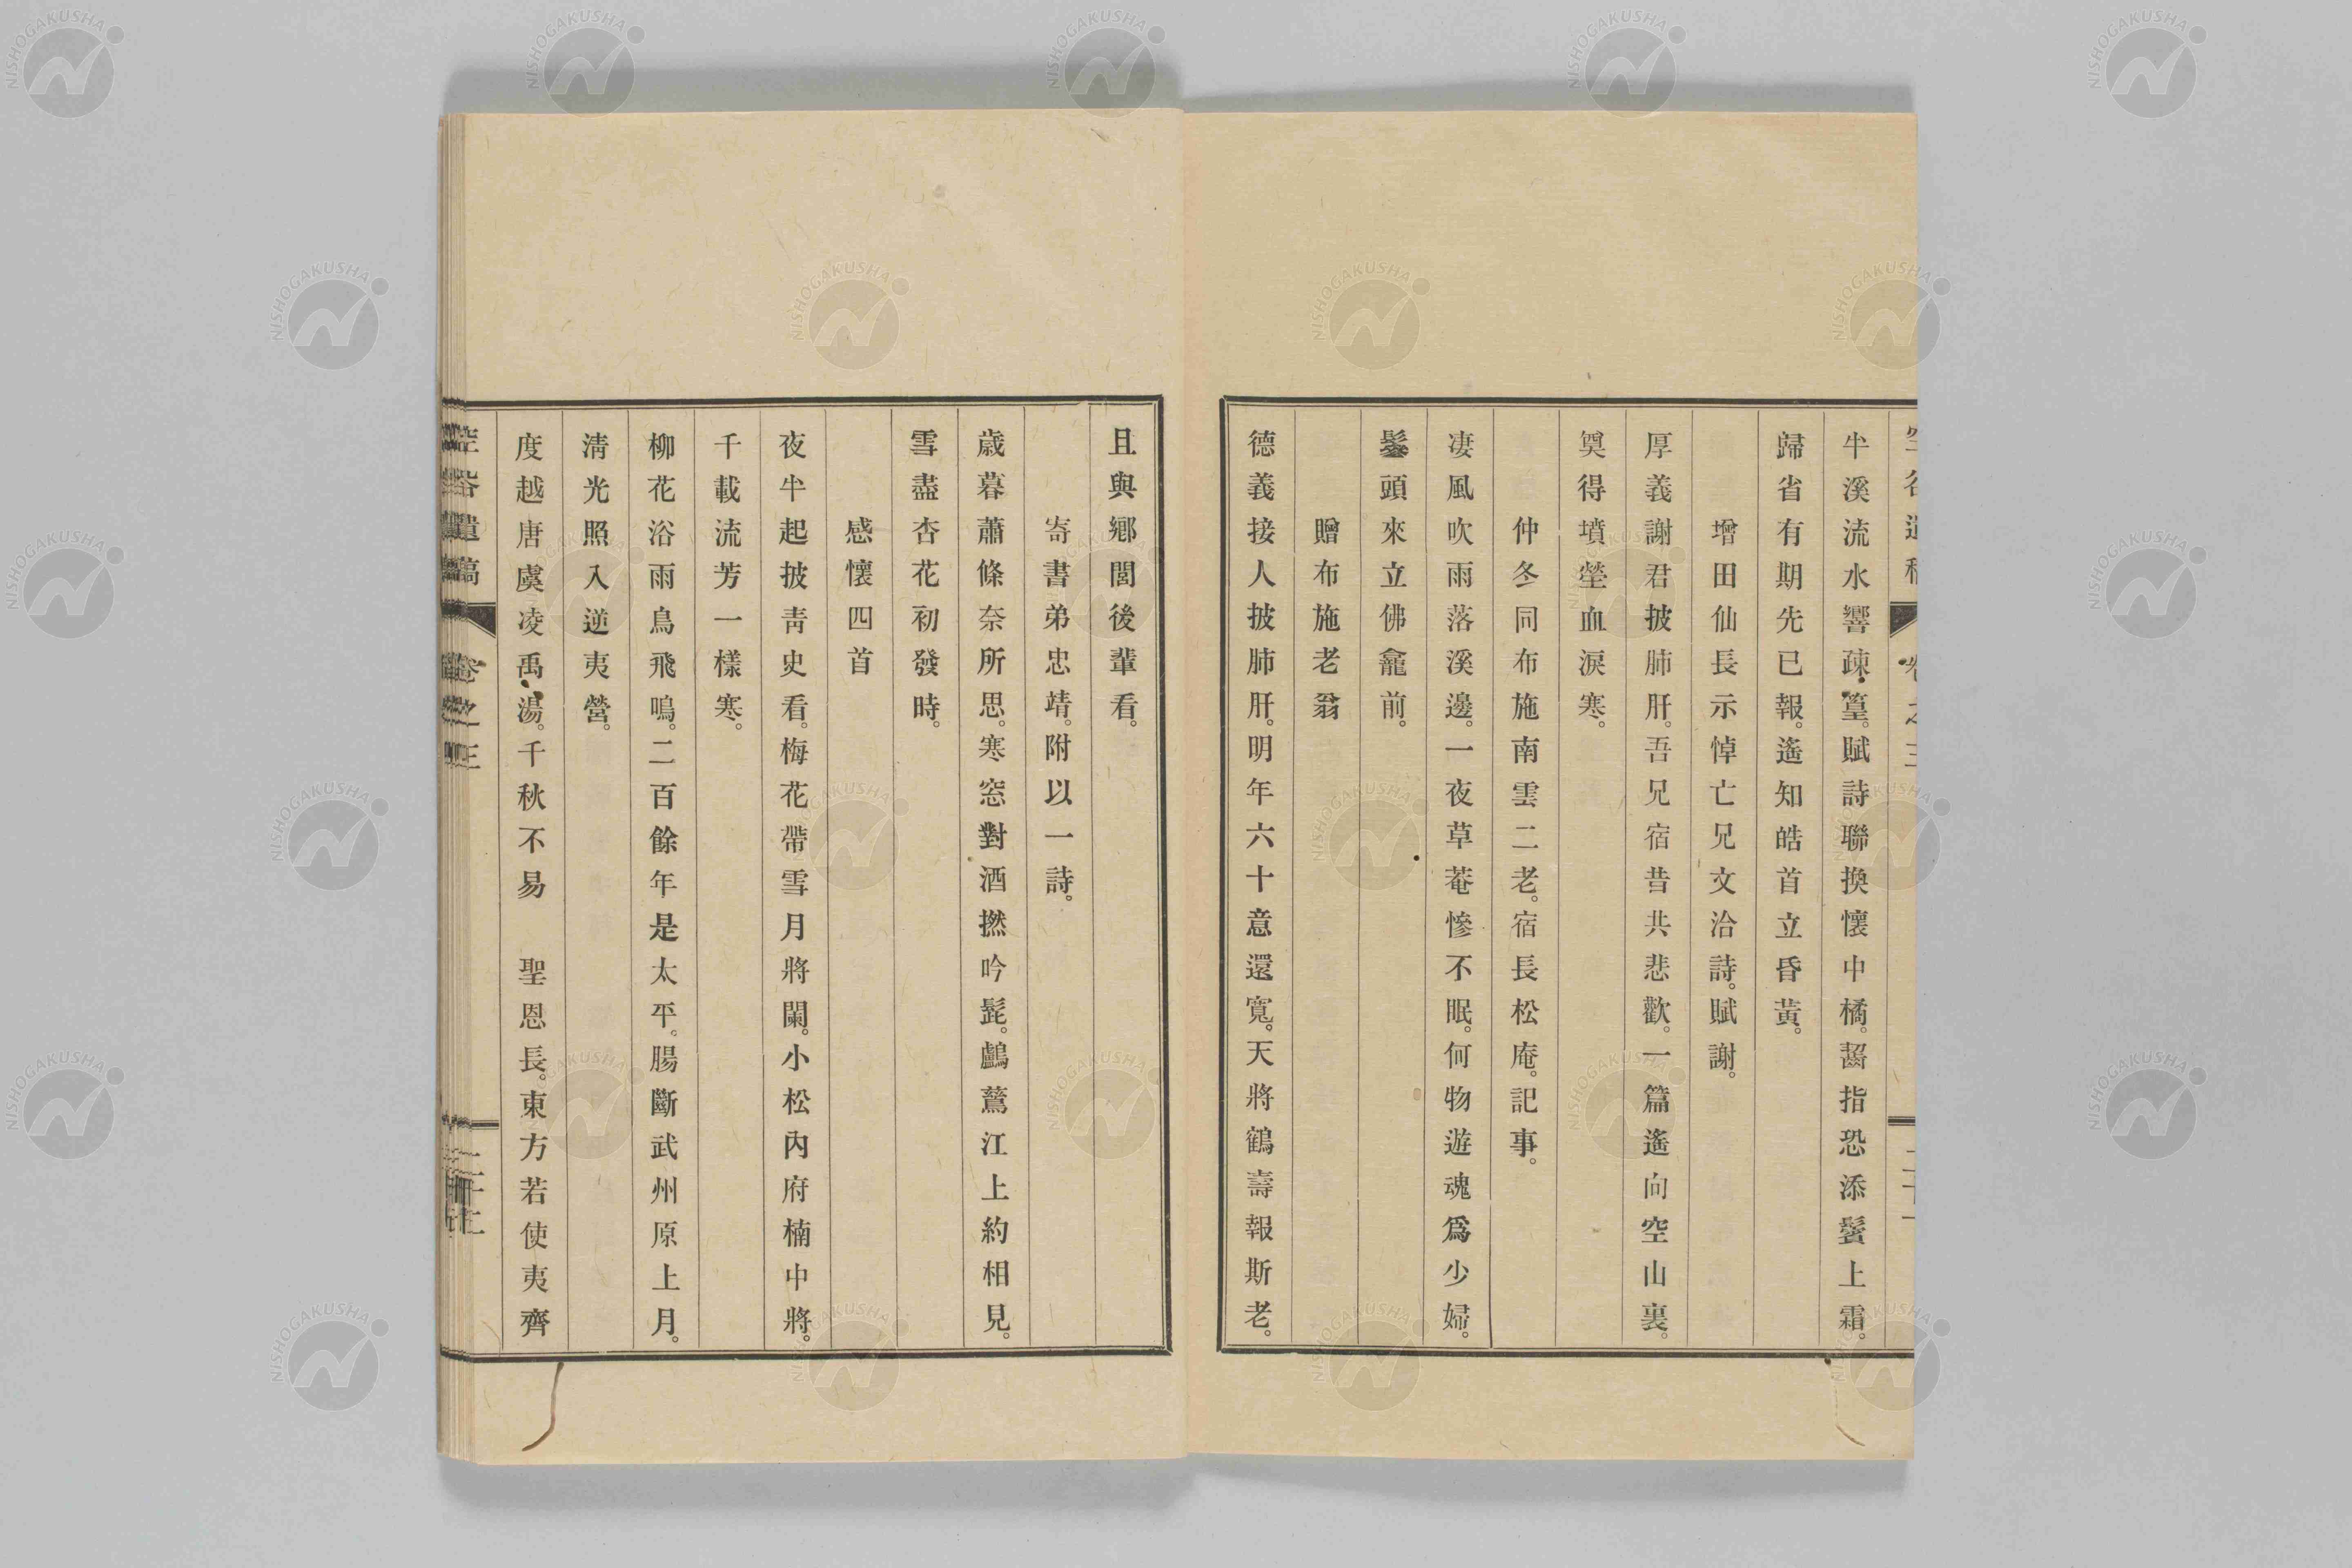 半溪流水響疎篁。賦詩聯換懷中橘。齧指恐添鬢上霜。
歸省有期先已報。遙知皓首立昏黃。
增田仙長示悼亡兄文洽詩。賦謝。
厚義謝君披肺肝。吾兄宿昔共悲歡。一篇遙向空山裏。
奠得墳塋血淚寒。
仲冬同布施南雲二老。宿長松庵。記事。
凄風吹雨落溪邊。一夜草菴慘不眠。何物遊魂爲少婦。
鬖頭來立佛龕前。
贈布施老翁
德義接人披肺肝。明年六十意還寬。天將鶴壽報斯老。
且與鄉閭後輩看。
寄書弟忠靖。附以一詩。
歲暮蕭條奈所思。寒窓對酒撚吟髭。鸕鶿江上約相見。
雪盡杏花初發時。
感懷四首
夜半起披靑史看。梅花帶雪月將闌。小松內府楠中將。
千載流芳一樣寒。
柳花浴雨鳥飛鳴。二百餘年是太平。腸斷武州原上月。
淸光照入逆夷營。
度越唐虞凌禹湯。千秋不易　聖恩長。東方若使夷齊
卷之三